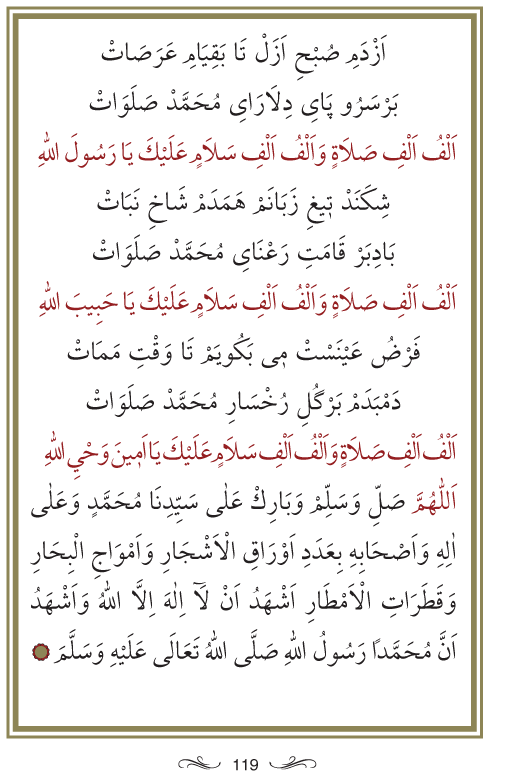 اَزْدَمِ صُبْحِ اَزَلْ تَا بَقِيَامِ عَرَصَاتْ
بَرْسَرُو پَاىِ دِلَارَاىِ مُحَمَّدْ صَلَوَاتْ
اَلْفُ اَلْفِ صَلَاةٍ وَاَلْفُ اَلْفِ سَلَامٍ عَلَيْكَ يَا رَسُولَ اللهِ
شِكَنَدْ تٖيغِ زَبَانَمْ هَمَدَمْ شَاخِ نَبَاتْ
بَادِبَرْ قَامَتِ رَعْنَاىِ مُحَمَّدْ صَلَوَاتْ
اَلْفُ اَلْفِ صَلَاةٍ وَاَلْفُ اَلْفِ سَلَامٍ عَلَيْكَ يَا حَبِيبَ اللهِ
فَرْضُ عَيْنَسْتْ مٖى بَكُويَمْ تَا وَقْتِ مَمَاتْ
دَمْبَدَمْ بَرْگُلِ رُخْسَارِ مُحَمَّدْ صَلَوَاتْ
اَلْفُ اَلْفِ صَلَاةٍ وَاَلْفُ اَلْفِ سَلَامٍ عَلَيْكَ يَا اَمٖينَ وَحْيِ اللهِ
اَللّٰهُمَّ صَلِّ وَسَلِّمْ وَبَارِكْ عَلٰى سَيِّدِنَا مُحَمَّدٍ وَعَلٰى
اٰلِهِ وَاَصْحَابِهِ بِعَدَدِ اَوْرَاقِ الْاَشْجَارِ وَاَمْوَاجِ الْبِحَارِ
وَقَطَرَاتِ الْاَمْطَارِ اَشْهَدُ اَنْ لَآ اِلٰهَ اِلَّا اللهُ وَاَشْهَدُ
اَنَّ مُحَمَّدًا رَسُولُ اللهِ صَلَّى اللهُ تَعَالَى عَلَيْهِ وَسَلَّمَ
119